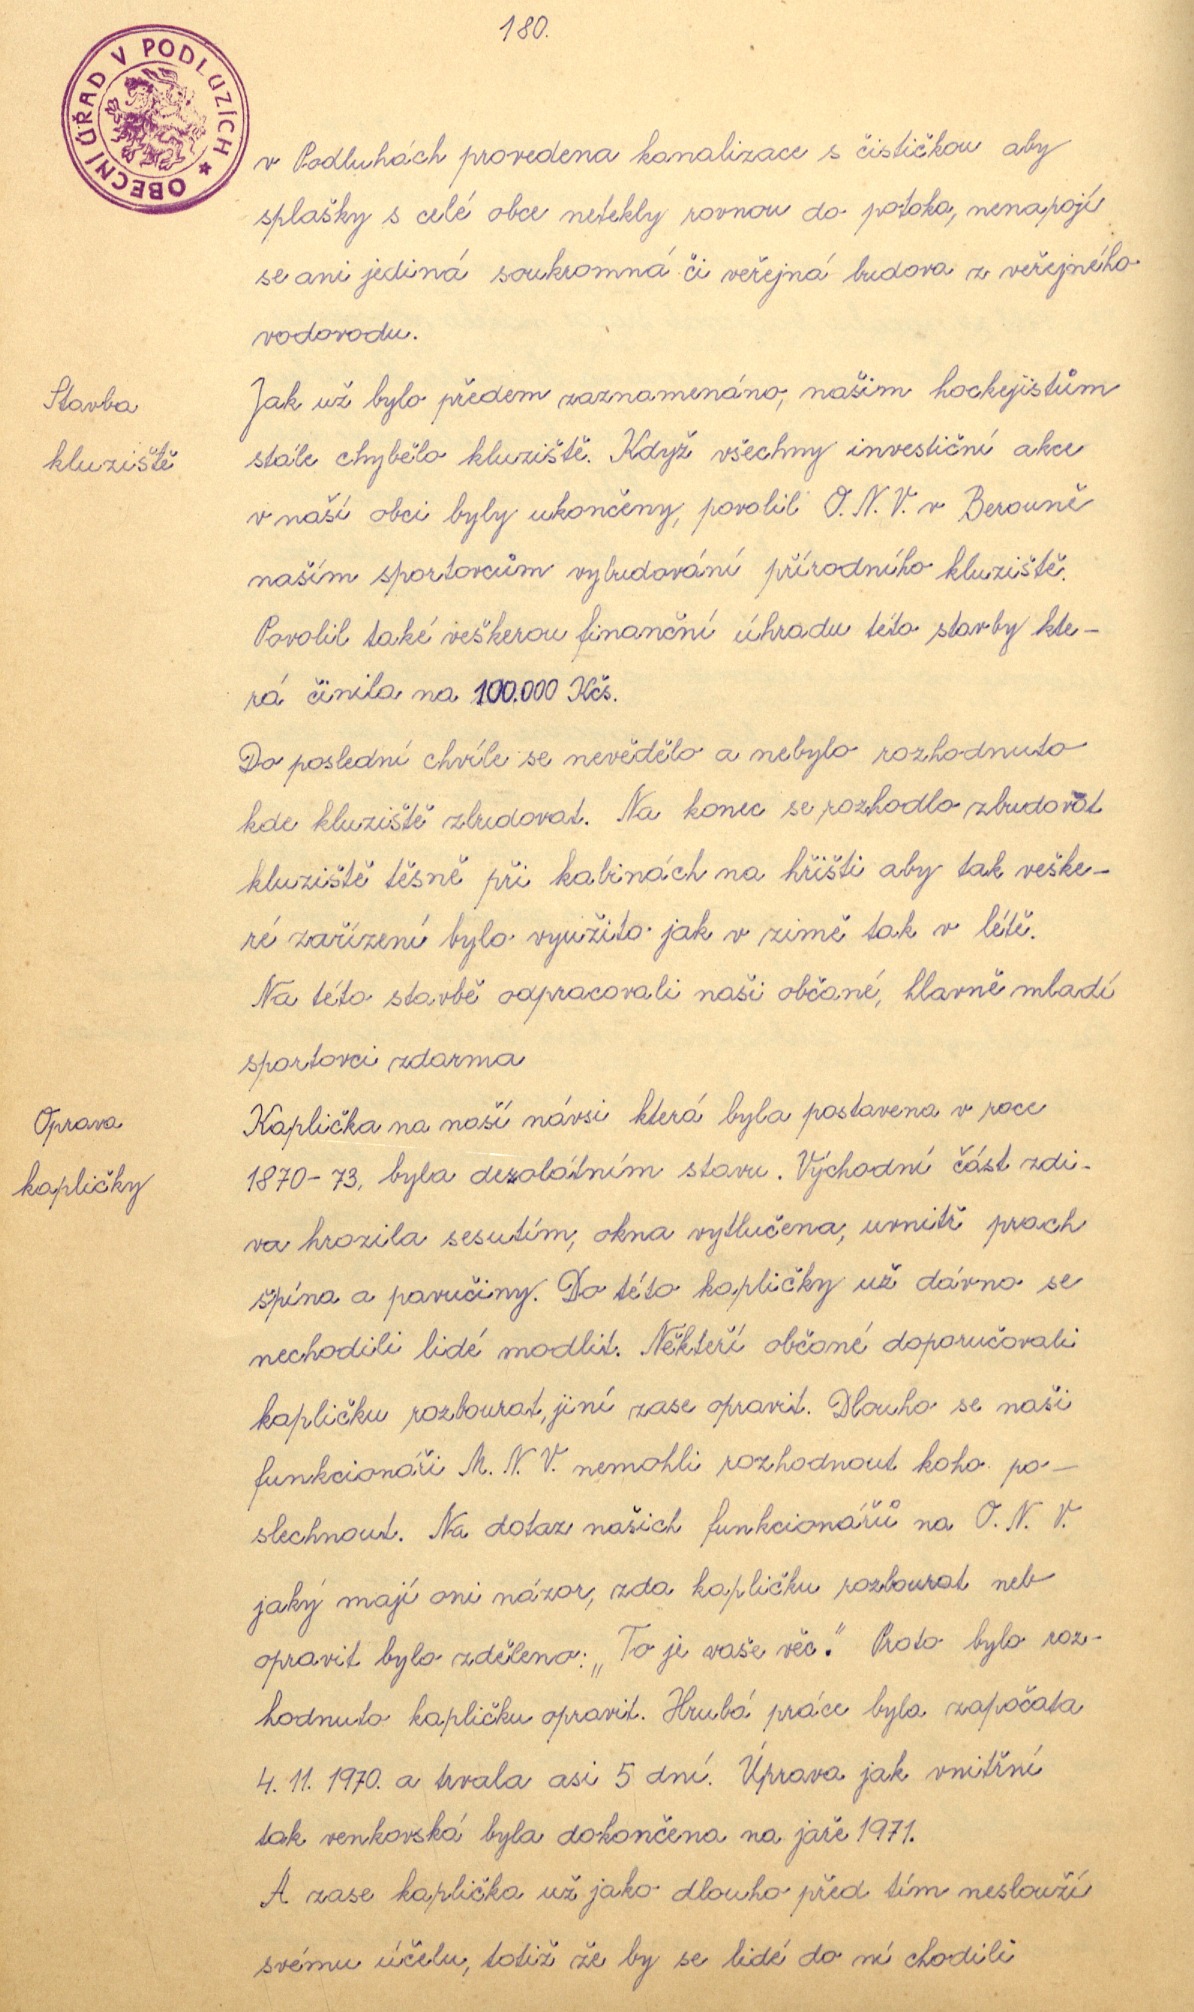 180.
OBECNÍ ÚŘAD V PODLUZÍCH *
v Podluhách provedena kanalizace s čističkou aby
splašky s celé obce netekly rovnou do potoka, nenapojí
se ani jediná soukromná či veřejná budova z veřejného
vodovodu.
Stavba
kluziště
Jak už bylo předem zaznamenáno, našim hockejistům
stále chybělo kluziště. Když všechny investiční akce
v naší obci byly ukončeny, povolil O. N. V. v Berouně
naším sportovcům vybudování přírodního kluziště.
Povolil také veškerou finanční úhradu této stavby kte-
rá činila na 100.000 Kčs.
Do poslední chvíle se nevědělo a nebylo rozhodnuto
kde kluziště zbudovat. Na konec se rozhodlo zbudovat
kluziště těsně při kabinách na hřišti aby tak veške-
ré zařízení bylo využito jak v zimě tak v létě.
Na této stavbě odpracovali naši občané, hlavně mladí
sportovci zdarma
Oprava
kapličky
Kaplička na naší návsi která byla postavena v roce
1870-73, byla dezolátním stavu. Východní část zdi-
va hrozila sesutím, okna vytlučena, uvnitř prach
špína a pavučiny. Do této kapličky už dávno se
nechodili lidé modlit. Někteří občané doporučovali
kapličku rozbourat, jiní zase opravit. Dlouho se naši
funkcionáři M. N. V. nemohli rozhodnout koho po-
slechnout. Na dotaz našich funkcionářů na O. N. V.
jaký mají oni názor, zda kapličku rozbourat neb
opravit bylo zděleno: „To je vaše věc." Proto bylo roz-
hodnuto kapličku opravit. Hrubá práce byla započata
4. 11. 1970. a trvala asi 5 dní. Úprava jak vnitřní
tak venkovská byla dokončena na jaře 1971.
A zase kaplička už jako dlouho před tím neslouží
svému účelu, totiž že by se lidé do ní chodili